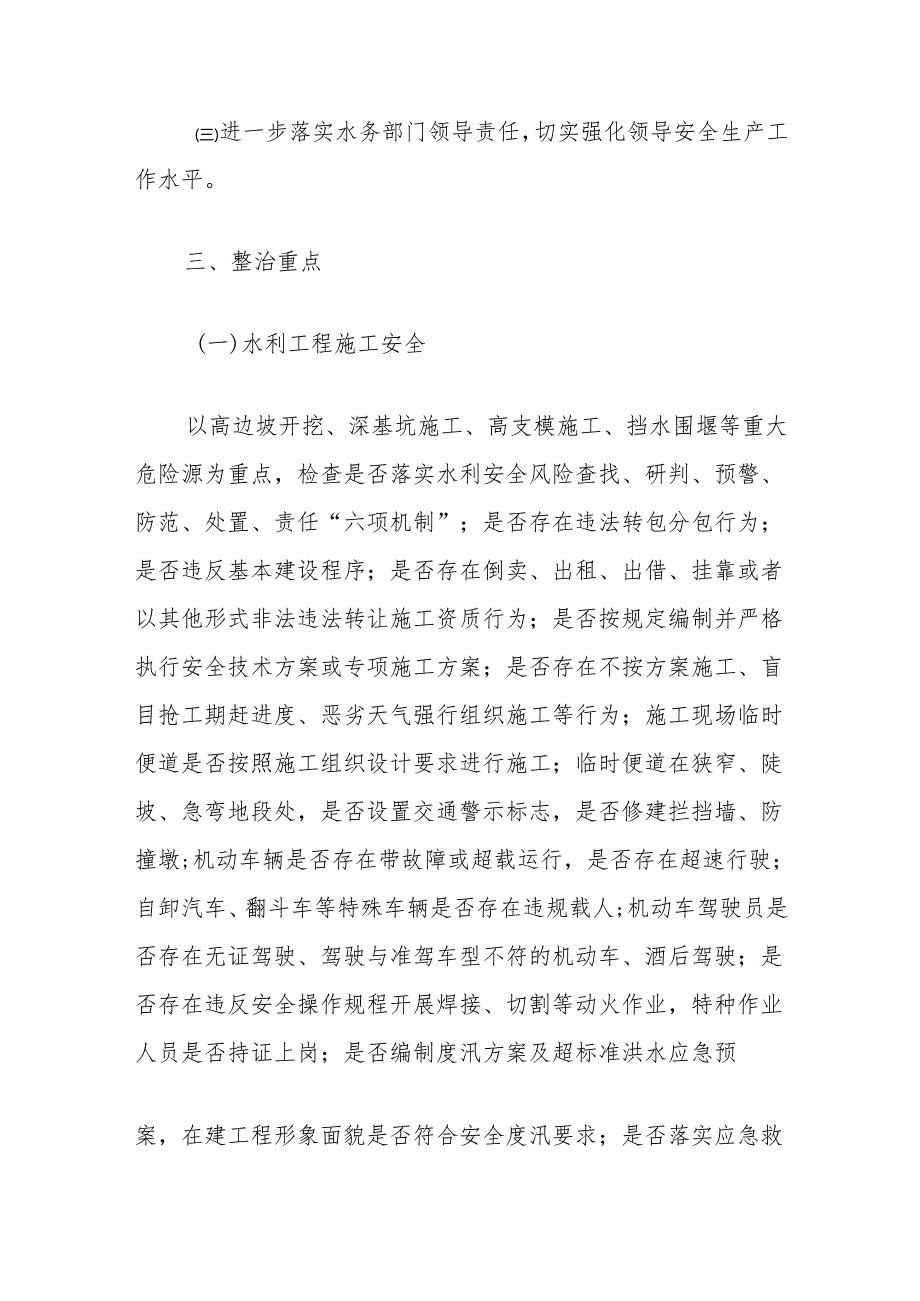 ㈢进一步落实水务部门领导责任,切实强化领导安全生产工
作水平。
三、整治重点
(一)水利工程施工安全
以高边坡开挖、深基坑施工、高支模施工、挡水围堰等重大
危险源为重点，检查是否落实水利安全风险查找、研判、预警、
防范、处置、责任“六项机制”；是否存在违法转包分包行为；
是否违反基本建设程序；是否存在倒卖、出租、出借、挂靠或者
以其他形式非法违法转让施工资质行为；是否按规定编制并严格
执行安全技术方案或专项施工方案；是否存在不按方案施工、盲
目抢工期赶进度、恶劣天气强行组织施工等行为；施工现场临时
便道是否按照施工组织设计要求进行施工；临时便道在狭窄、陡
坡、急弯地段处，是否设置交通警示标志，是否修建拦挡墙、防
撞墩;机动车辆是否存在带故障或超载运行，是否存在超速行驶；
自卸汽车、翻斗车等特殊车辆是否存在违规载人;机动车驾驶员是
否存在无证驾驶、驾驶与准驾车型不符的机动车、酒后驾驶；是
否存在违反安全操作规程开展焊接、切割等动火作业，特种作业
人员是否持证上岗；是否编制度汛方案及超标准洪水应急预
案，在建工程形象面貌是否符合安全度汛要求；是否落实应急救